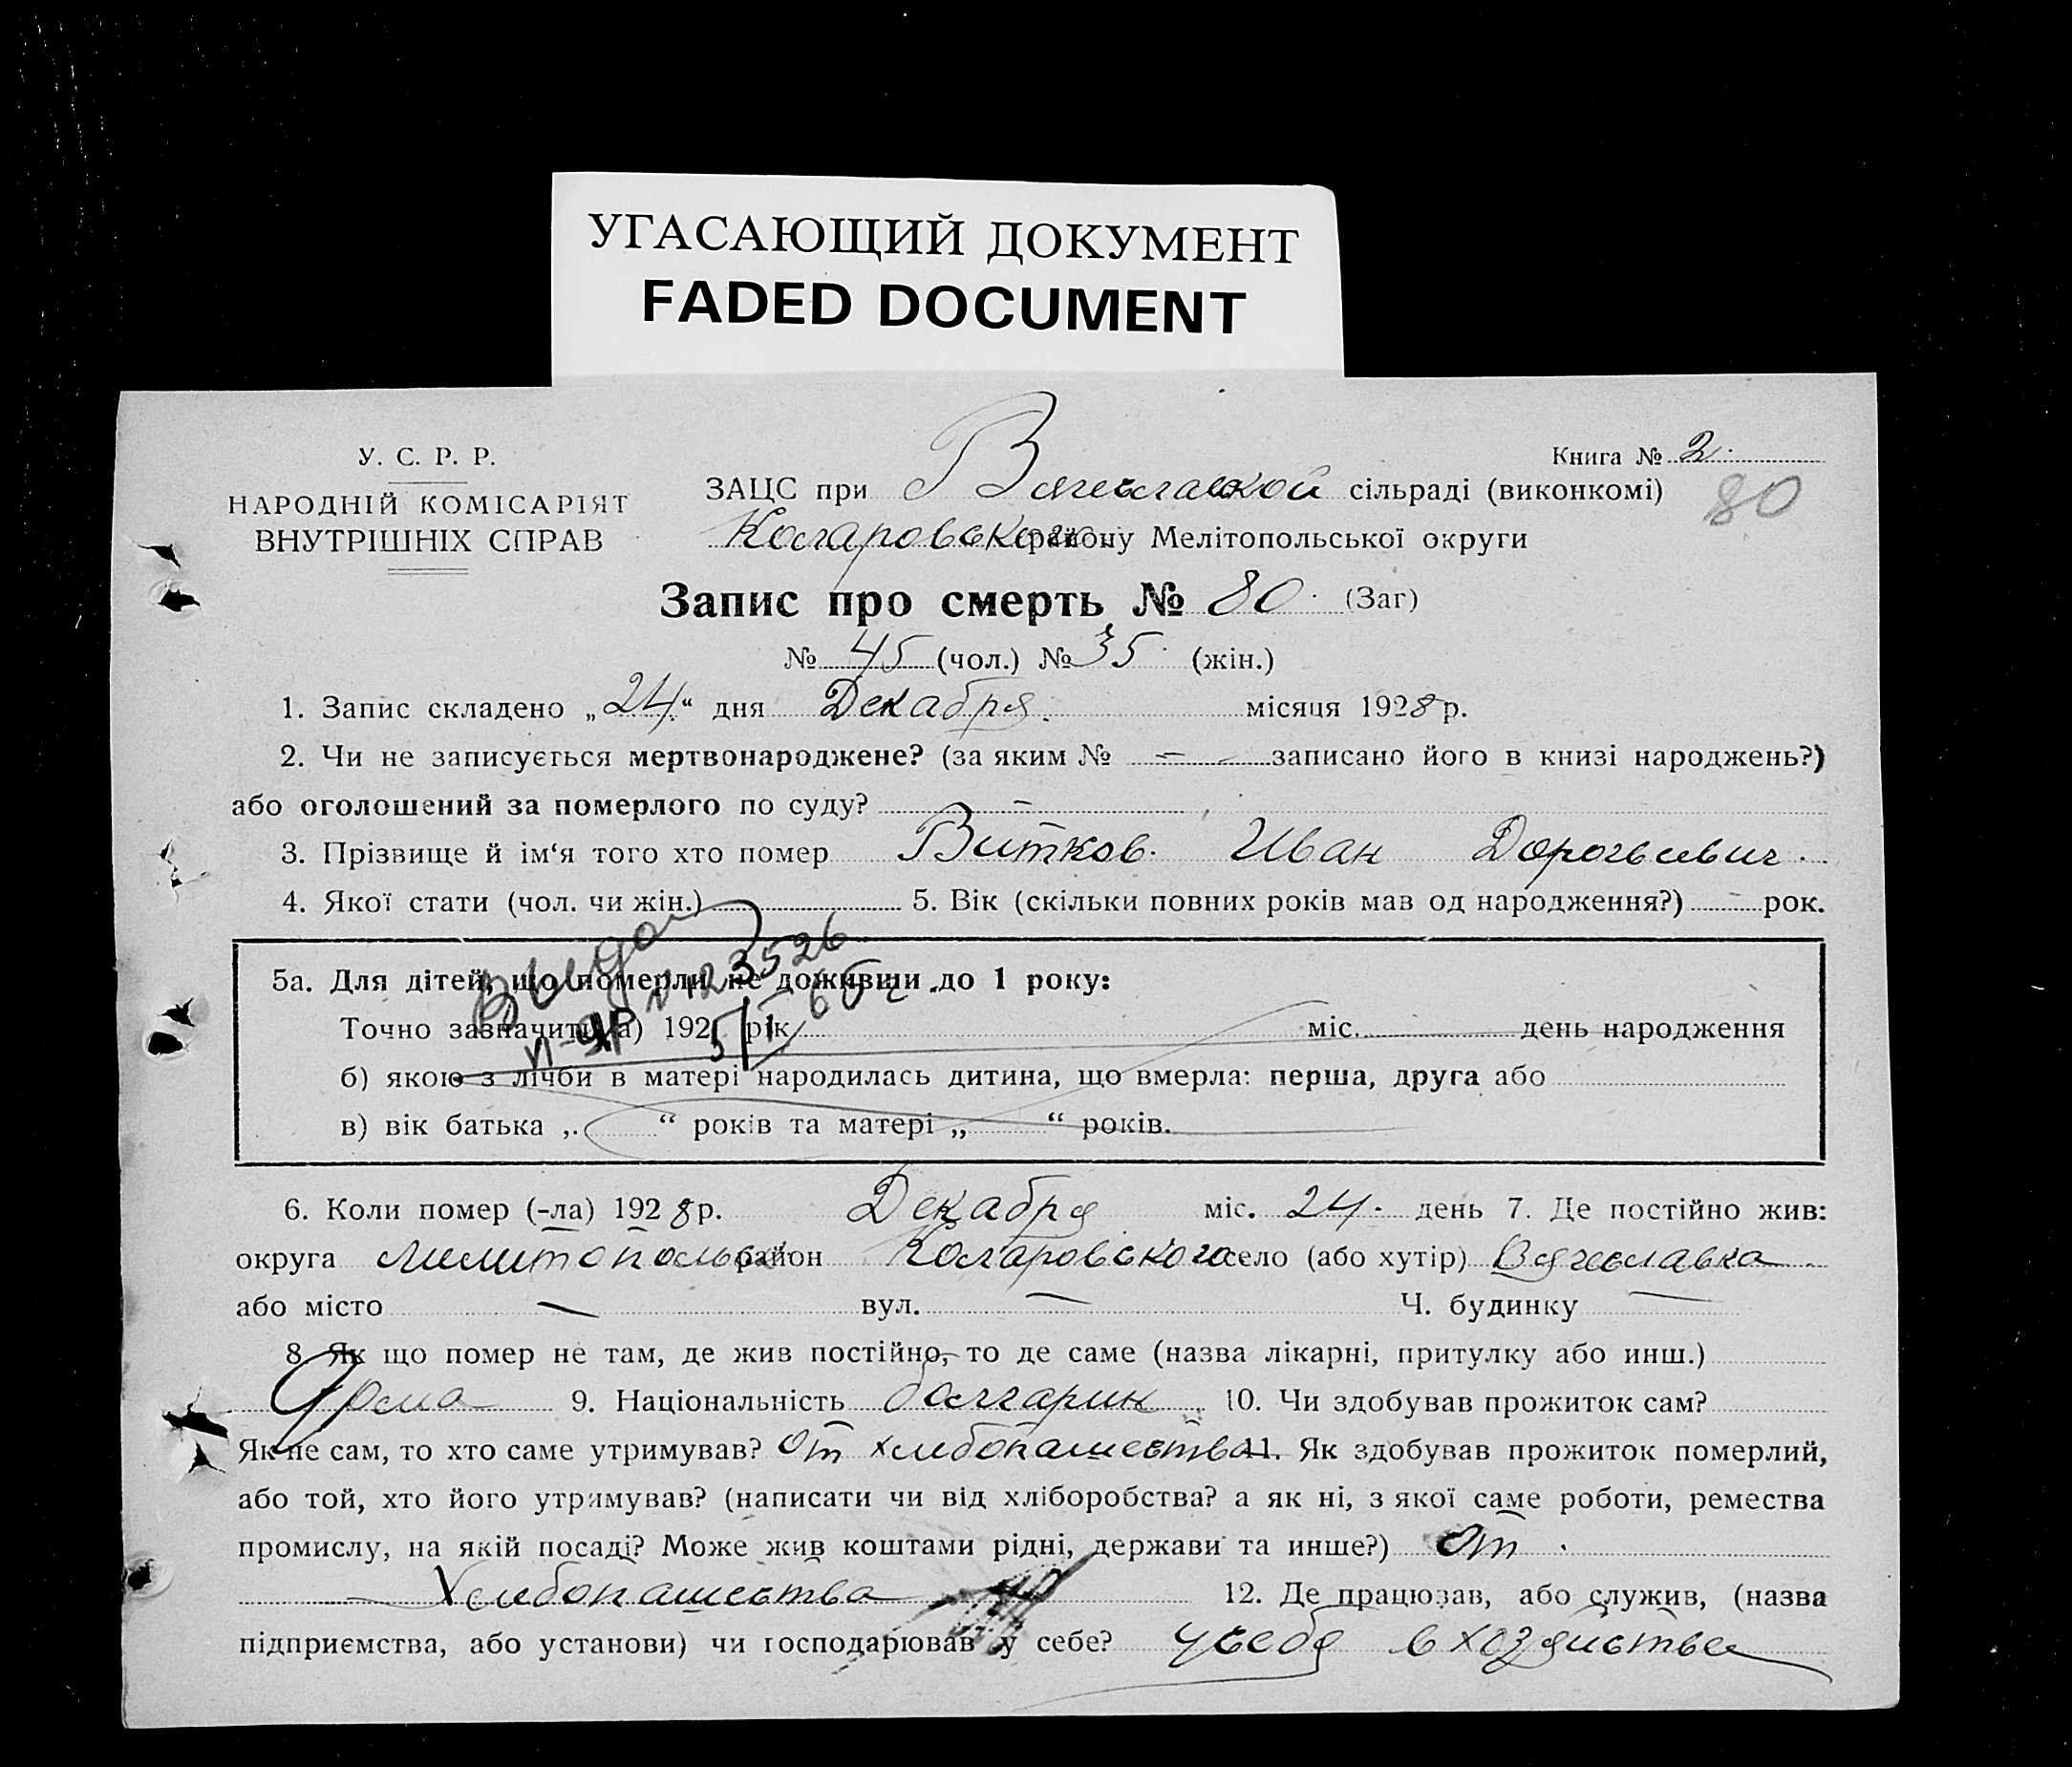 УГАСАЮЩИЙ ДОКУМЕНТ
FADED DOCUMENT
У. С. Р. Р.
НАРОДНІЙ КОМІСАРІЯТ
ВНУТРІШНІХ СПРАВ
Книга № 2.
80
ЗАЦС при Вячеславской сільраді (виконкомі)
Коларовского району Мелітопольської округи
Запис про смерть № 80. (Заг)
№ 45 (чол.) № 35. (жін.)
1. Запис складено „24“ дня Декабря. місяця 1928 р.
2. Чи не записується мертвонароджене? (за яким № — записано його в книзі народжень?)
або оголошений за померлого по суду? —
3. Прізвище й ім‘я того хто помер Витков. Иван
4. Якої стати (чол. чи жін.) 5. Вік (скільки повних років мав од народження?) — рок.
5а. Для дітей, що померли не доживши до 1 року:
Точно зазначити: а) 192 рік міс. день народження
б) якою з лічби в матері народилась дитина, що вмерла: перша, друга або
в) вік батька „ “ років та матері „ “ років.
6. Коли помер (-ла) 1928 р. Декабря міс. 24. день 7. Де постійно жив:
округа район Коларовського село (або хутір) Вячеславка
або місто — вул. — Ч. будинку —
8. Як що помер не там, де жив постійно, то де саме (назва лікарні, притулку або инш.)
9. Національність болгарин 10. Чи здобував прожиток сам?
Як не сам, то хто саме утримував? От хлибопашества 11. Як здобував прожиток померлий,
або той, хто його утримував? (написати чи від хліборобства? а як ні, з якої саме роботи, ремества
промислу, на якій посаді? Може жив коштами рідні, держави та инше?) От
Хлибопашества 12. Де працював, або служив, (назва
підприємства, або установи) чи господарював у себе? у себя в хозяйстве